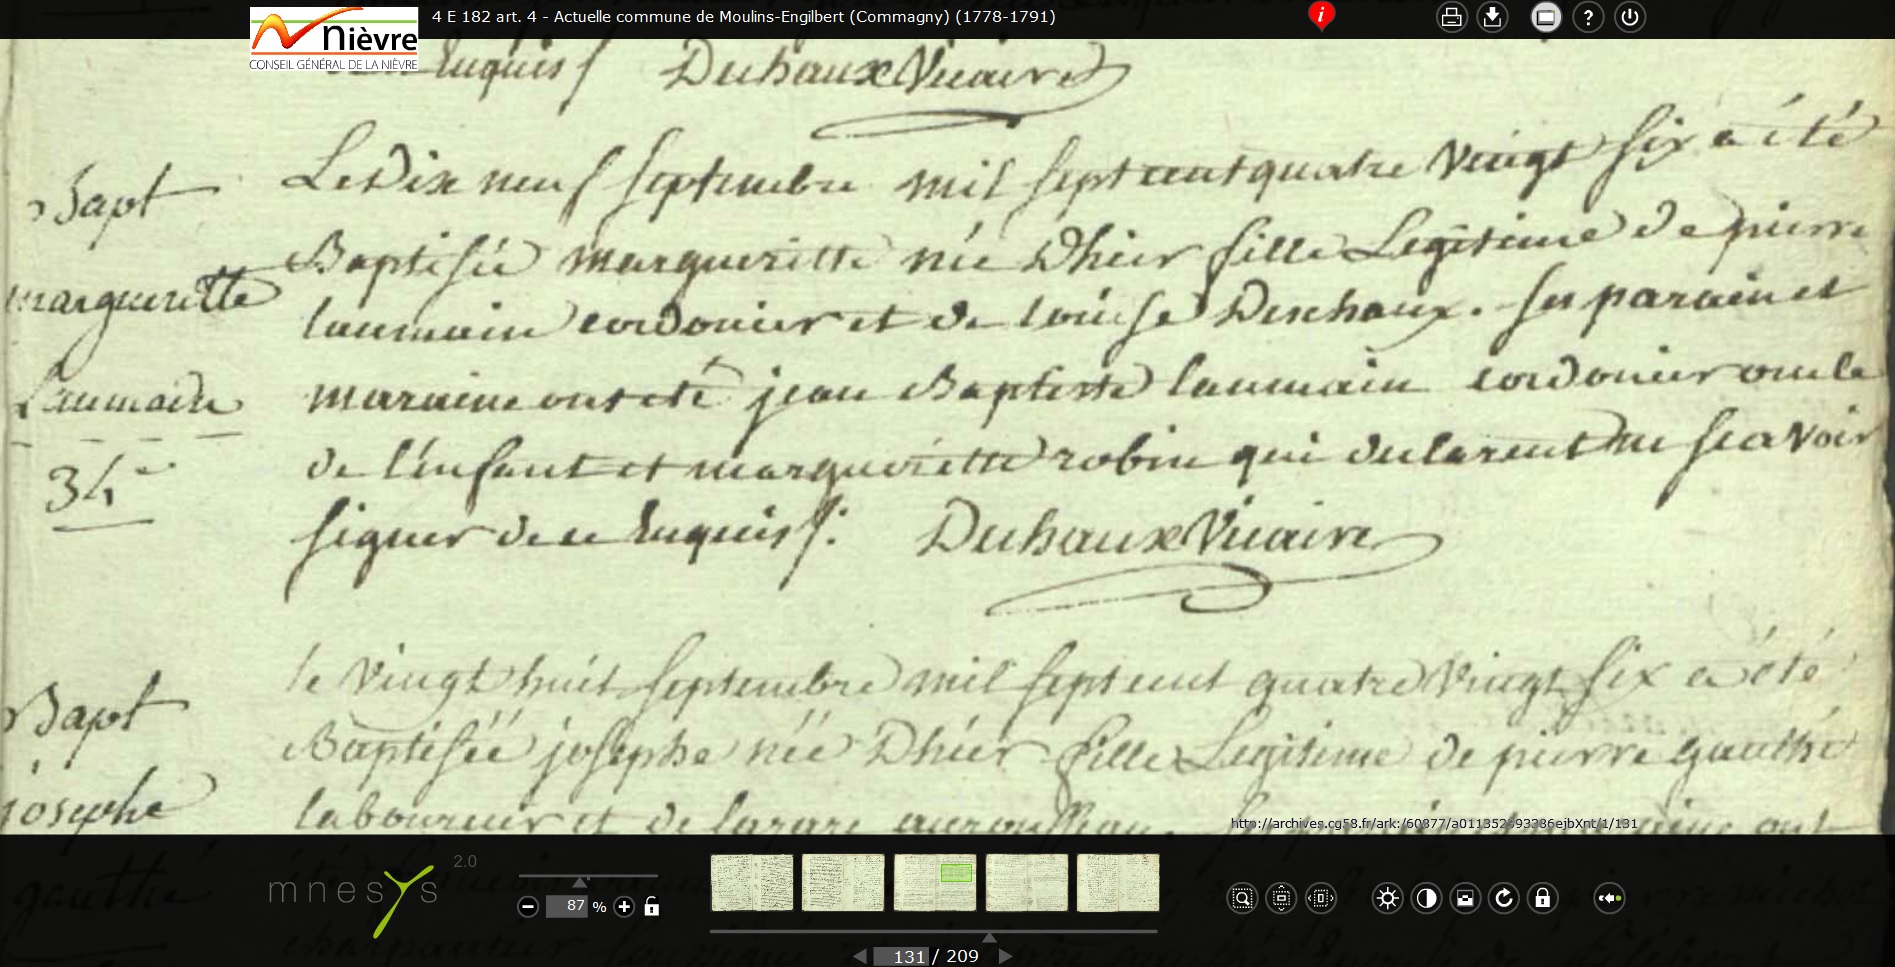 4 E 182 art. 4 - Actuelle commune de Moulins-Engilbert (Commagny) (1778-1791)
Nièvre
CONSEIL GÉNÉRAL DE LA NIÈVRE
Enquis Duhaux Vicaire
Bapt
margueritte
Laumain
34e
Le Dix neuf septembre mil sept cent quatre vingt six a été
Baptisée margueritte née Dhier fille Legitime de pierre
laumain cordonier et de louise Deschaux. ses parain et
maraine ont été jean Baptiste laumain cordonier oncle
de l'enfant et margueritte robin qui declarent ne scavoir
signer de ce Enquis. Duhaux Vicaire
Bapt
josephe
gauthé
le vingt huit septembre mil sept cent quatre vingt six a été
Baptisée josephe née Dhier fille Legitime de pierre gauthé
laboureur et de lazare
http://archives.cg58.fr/ark:/60877/a011352593386ejbXnt/1/131
mnesys 2.0
87 %
131 / 209